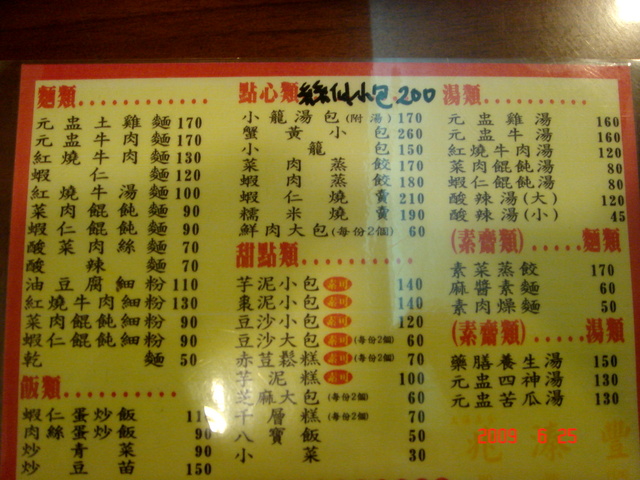 麵類
元盅土雞麵 170
元盅牛肉麵 170
紅燒牛肉麵 130
蝦仁麵 120
紅燒牛湯麵 100
菜肉餛飩麵 90
蝦仁餛飩麵 90
酸菜肉絲麵 70
酸辣麵 70
油豆腐細粉 110
紅燒牛肉細粉 130
菜肉餛飩細粉 90
蝦仁餛飩細粉 90
乾麵 50
飯類
蝦仁蛋炒飯
肉絲蛋炒飯 90
炒青菜 90
炒豆苗 150
點心類 絲仙小包 200
小籠湯包(附湯) 170
蟹黃小包 260
小籠包 150
菜肉蒸餃 170
蝦肉蒸餃 180
蝦仁燒賣 210
糯米燒賣 190
鮮肉大包(每份2個) 60
甜點類
芋泥小包 140
棗泥小包 140
豆沙小包 120
豆沙大包 (每份2個) 60
赤荳鬆糕 (每份2個) 70
芋泥糕 100
芝麻大包 (每份2個) 60
千層糕 (每份2個) 70
八寶飯 50
小菜 30
湯類
元盅雞湯 160
元盅牛湯 160
紅燒牛肉湯 120
菜肉餛飩湯 80
蝦仁餛飩湯 80
酸辣湯(大) 120
酸辣湯(小) 45
(素齋類) 麵類
素菜蒸餃 170
麻醬素麵 60
素肉燥麵 50
(素齋類) 湯類
藥膳養生湯 150
元盅四神湯 130
元盅苦瓜湯 130
2009 6 25